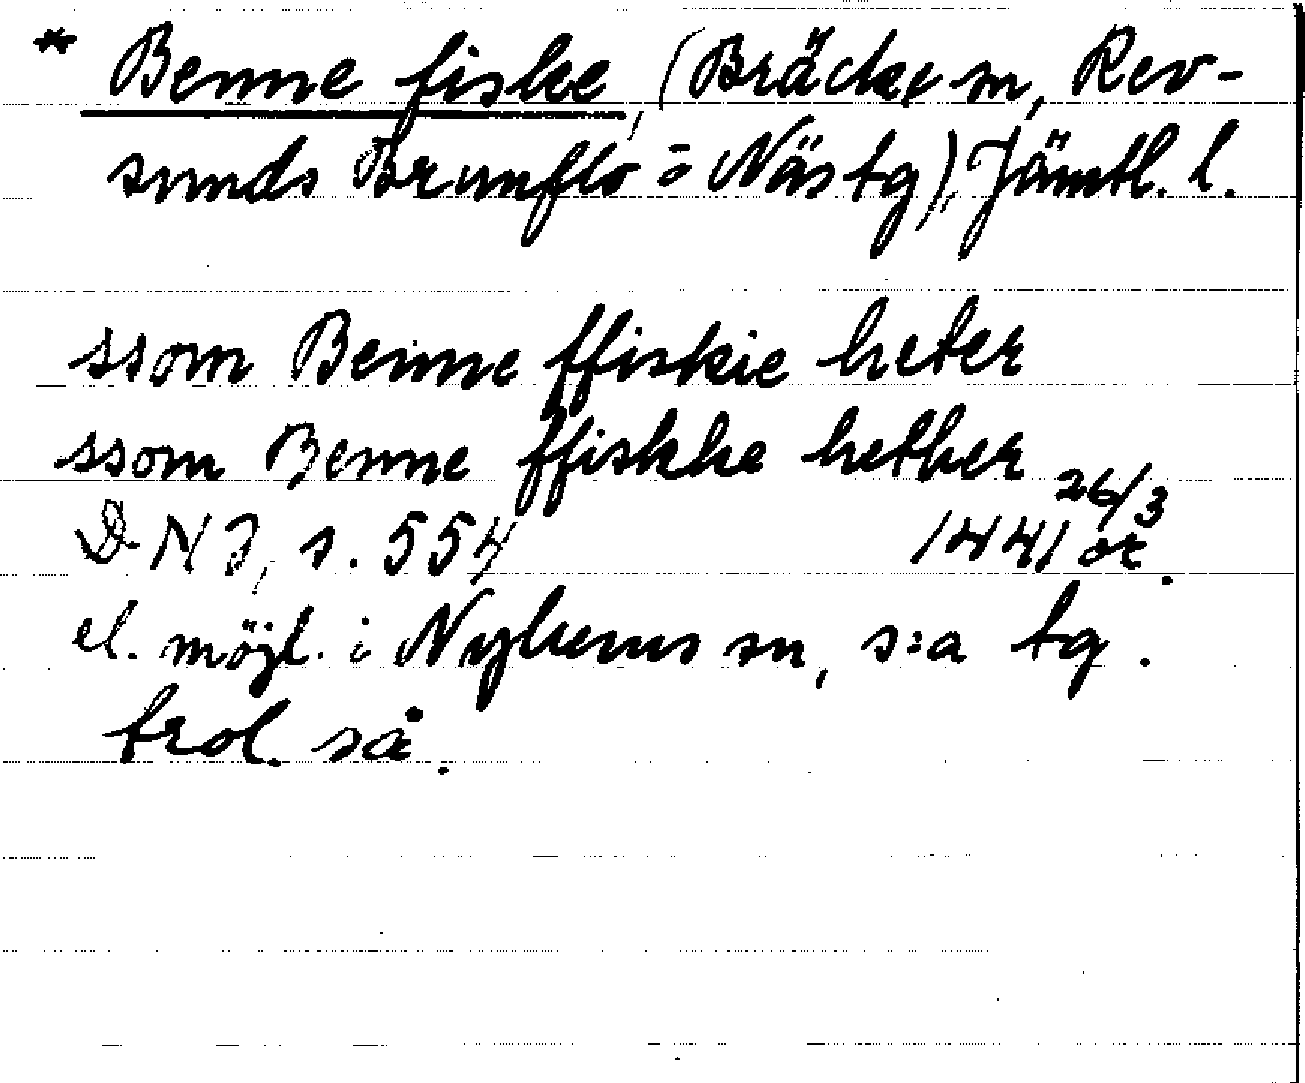 * Benne fiske, (Bräcke sn, Rev-
sunds Brunflo o Näs tg), Jämtl. l.
ssom Benne ffiskie heter
ssom Benne ffiskke hether
DN 3, s. 554 1441 26/3 or.
el. möjl. i Nyhems sn, s:a tg.
trol. så.